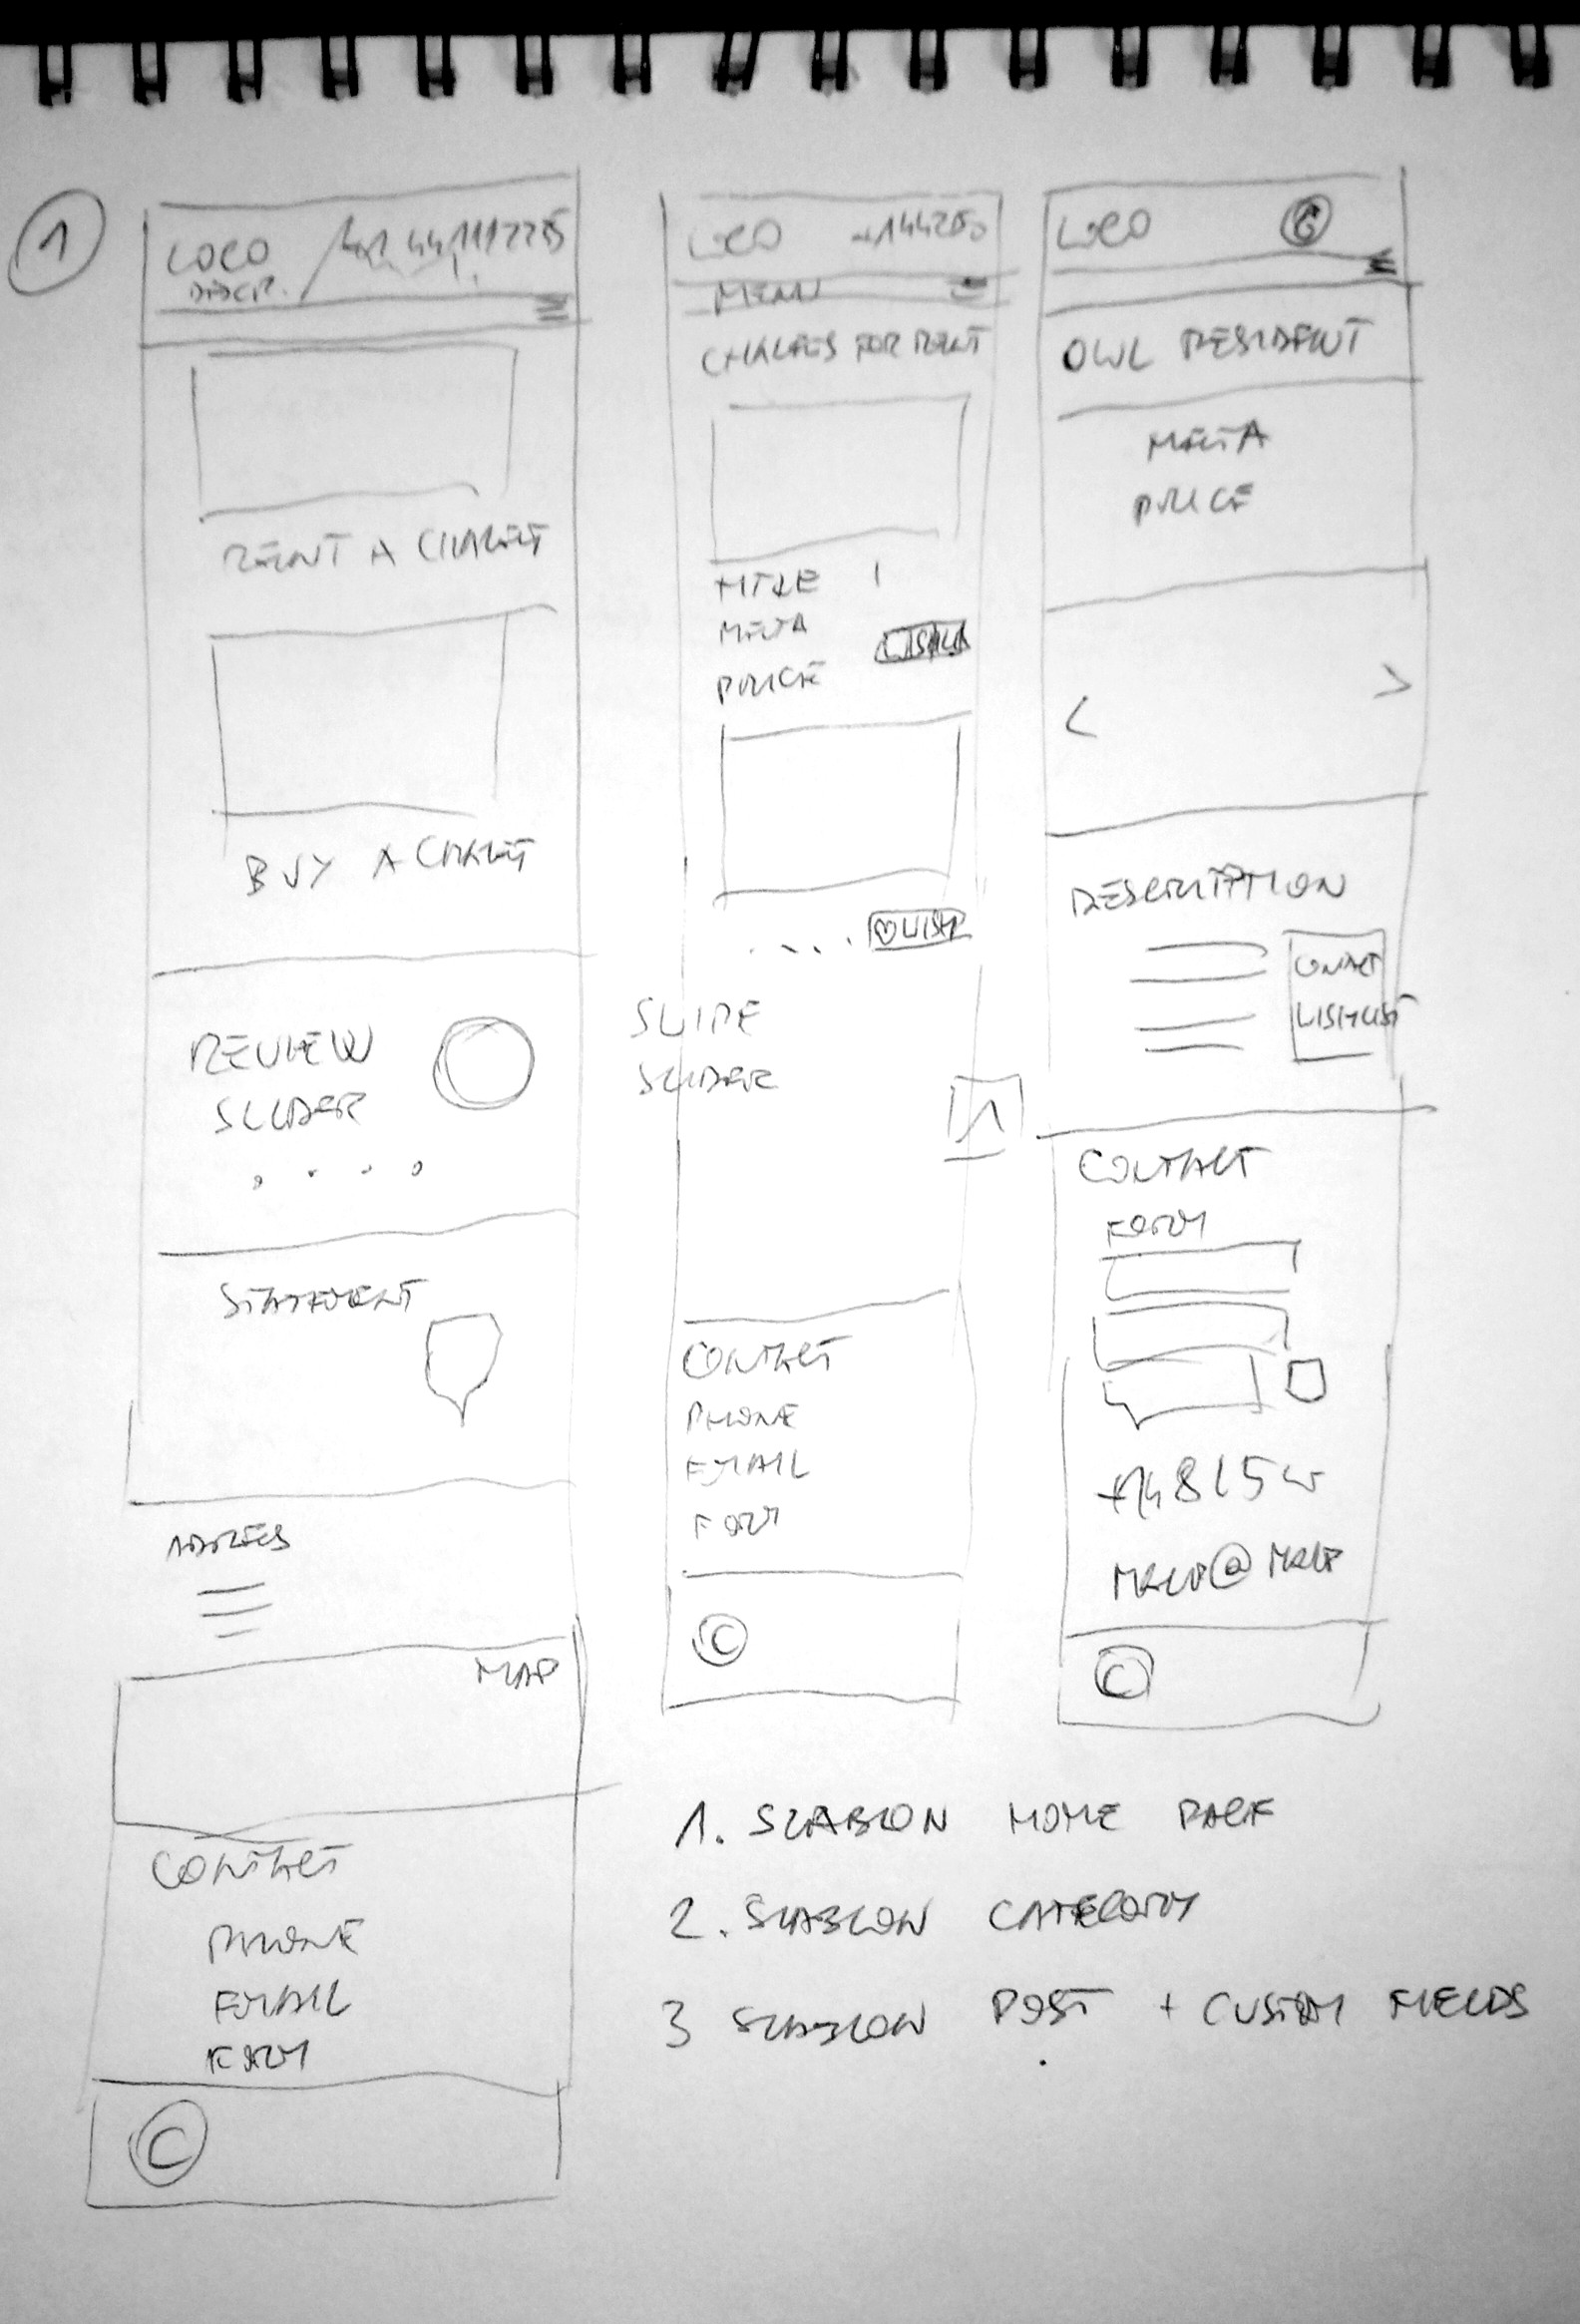 1
LOGO
DESCR.
RENT A CHALET
BUY A CHALET
REVIEW
SLIDER
STATEMENT
ADDRES
MAP
CONTACT
PHONE
EMAIL
FORM
©
LOGO
MENU
CHALETS FOR RENT
TITLE
META
PRICE
♡ WISH
SLIDER
CONTACT
PHONE
EMAIL
FORM
©
LOGO
OWL RESIDENT
META
PRICE
< >
DESCRIPTION
CONTACT
WISHLIST
CONTACT
FORM
©
1. SZABLON HOME PAGE
2. SZABLON CATEGORY
3 SZABLON POST + CUSTOM FIELDS